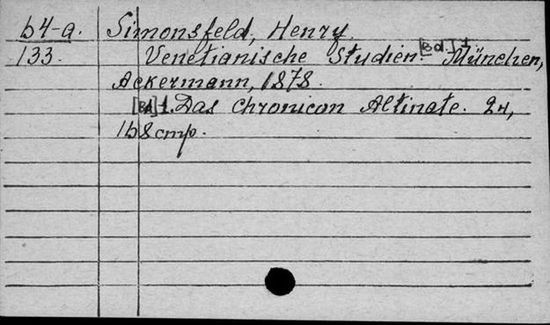 64-a. Simonsfeld, Henry.
133. Venetianische Studien. [Bd.] 1. München,
Ackermann, 1878.
[Bd.] 1. Das Chronicon Altinate. 2н,
168 стр.